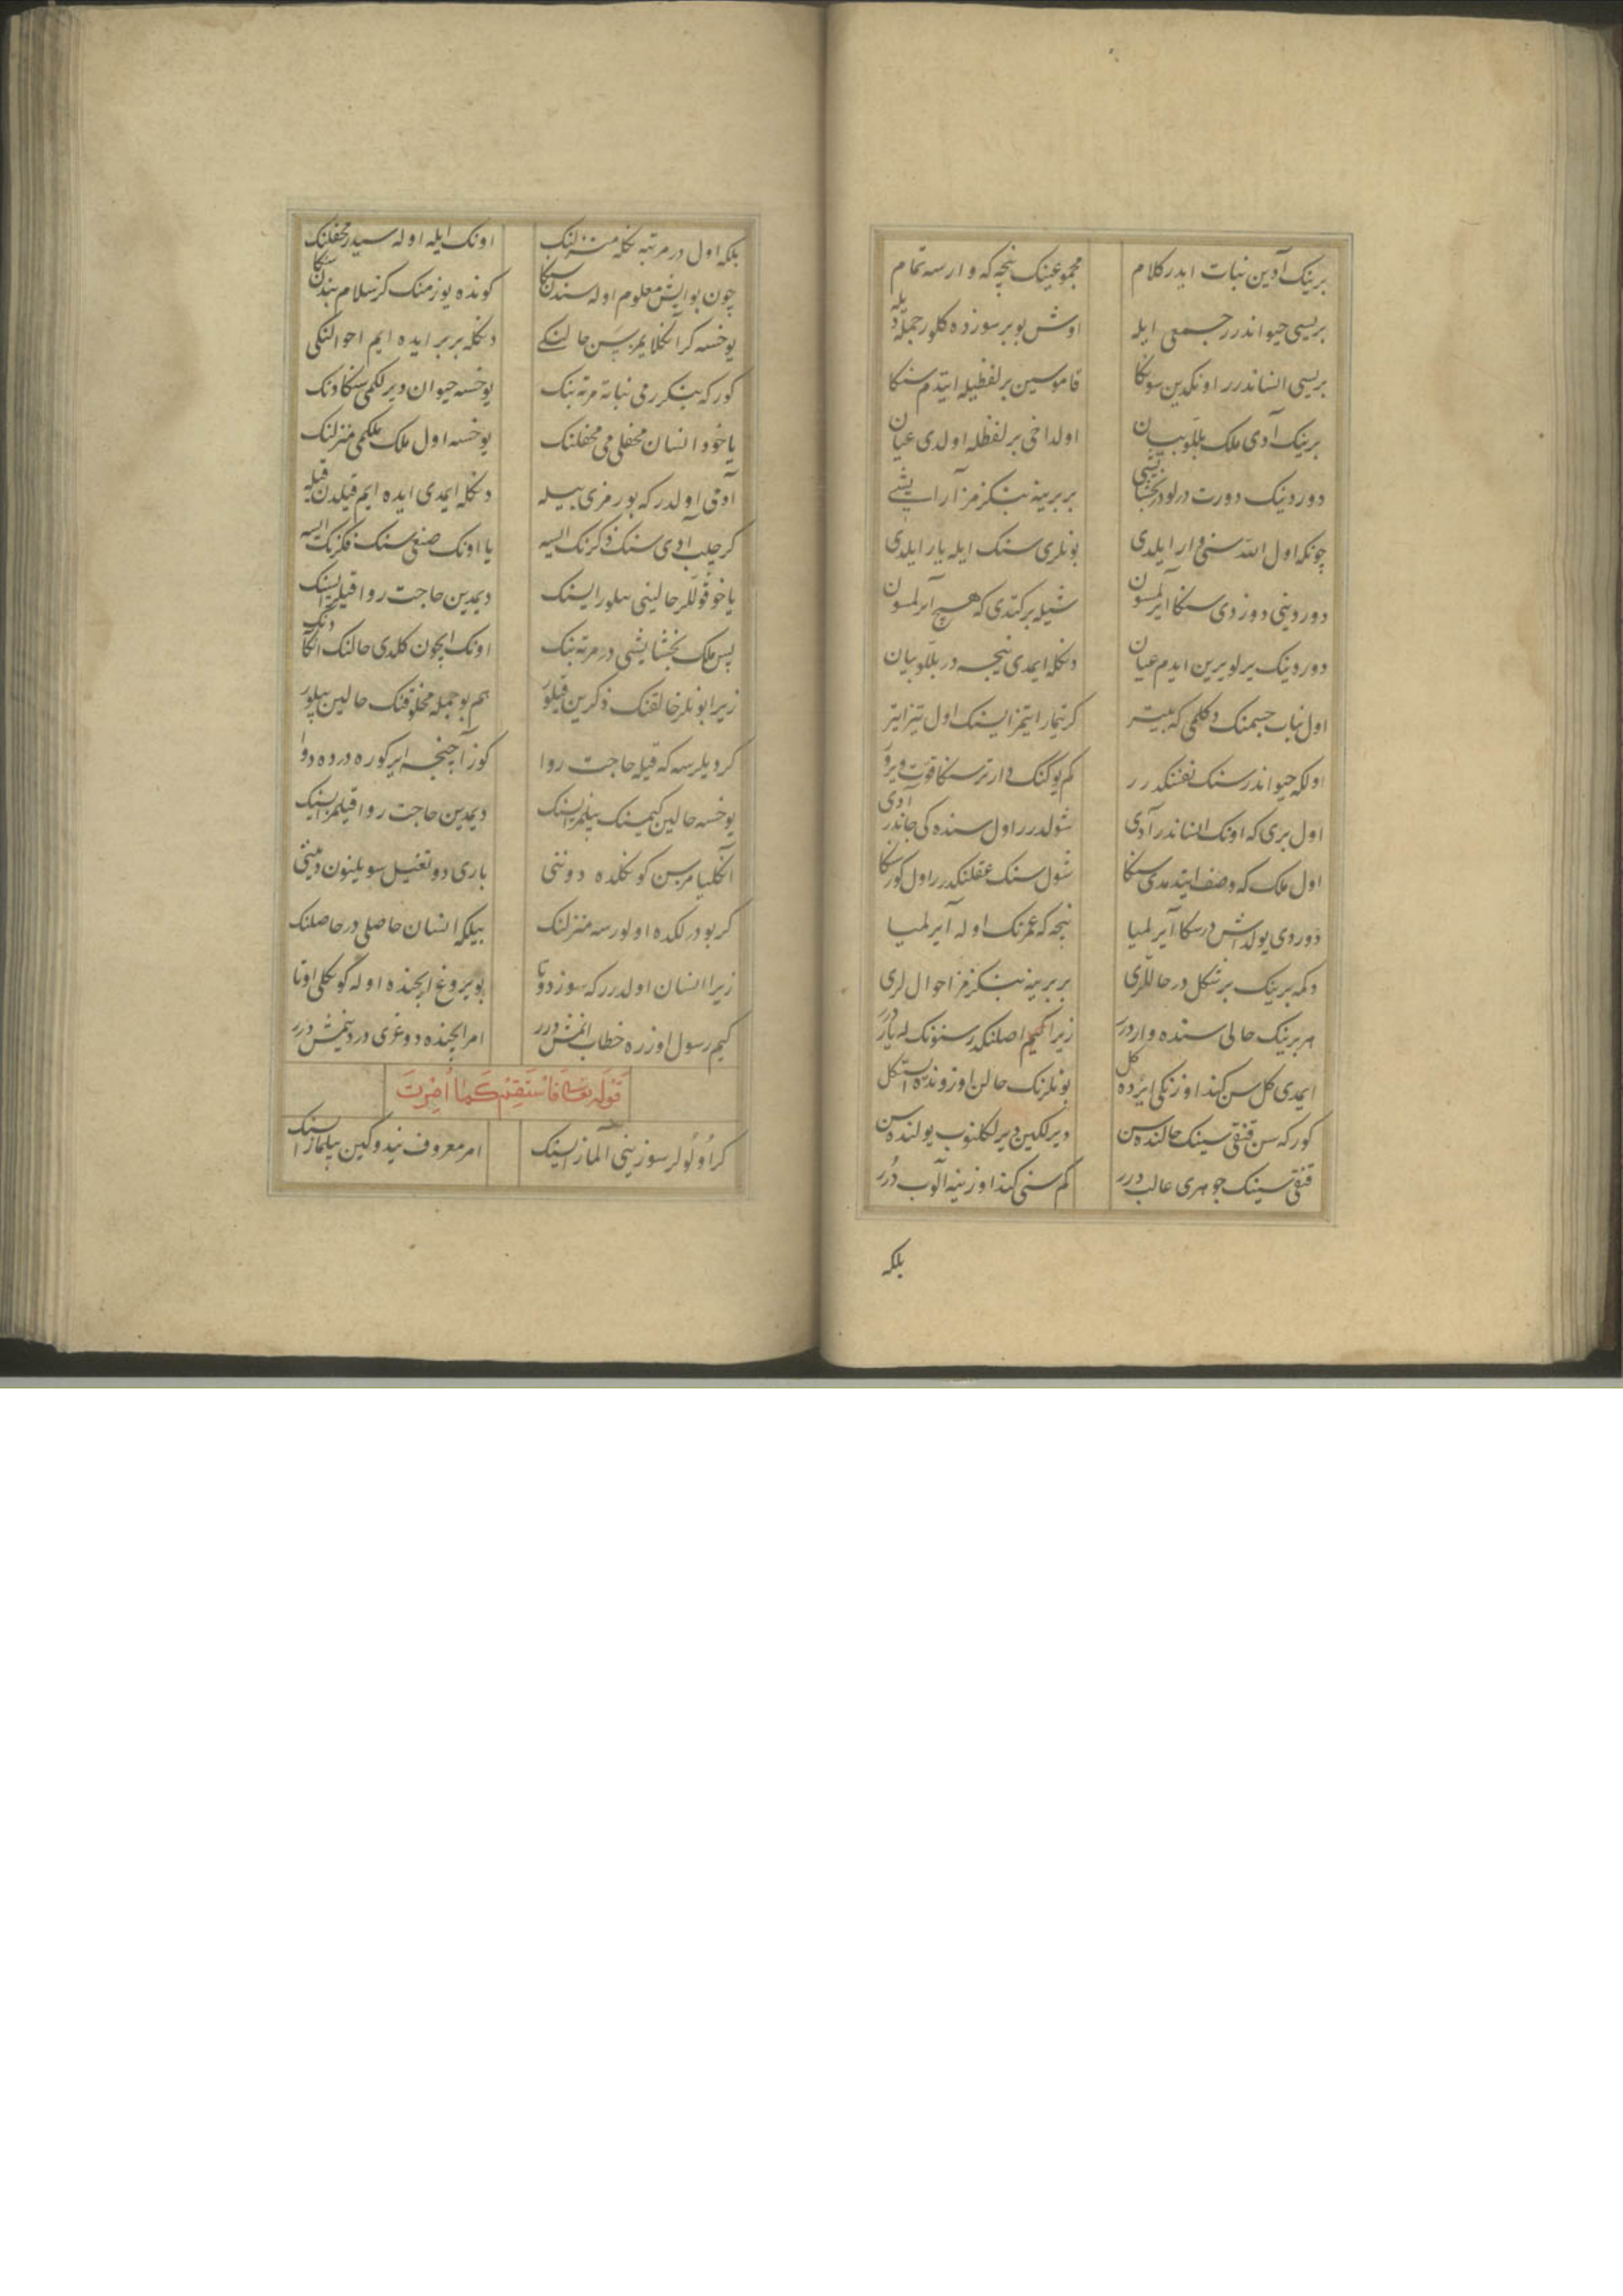 برینک آدین نبات ایدر کلام مجموعینک نیجه که وارسه تمام
بریسی حیواندرر جمعی ایله اوش بو بر سوزده کلور جمله دیله
بریسی انساندرر اونکدین سونکا قاموسین بر لفظیله ایتدم سنکا
برینک آدی ملک بللو بیان اولداخی بر لفظله اولدی عیان
دوردینک دورت درلودر بخشایشی بر برینه بنکزمز آرایشی
چونکه اول الله سنی وار ایلدی بونلری سنک ایله یار ایلدی
دوردینی دوزدی سنکا ایرلمسون شیله برکتدی که هیچ آیرلمسون
دوردینک یرلو یرین ایدم عیان دنکله ایمدی نیجه در بللو بیان
اول نبات جسمنک دکلمی که بیتر کر تیمار ایتمزایسنک اول تیز ایتر
اولکه حیواندر سنک نفسنکدرر کم یوکنک دارتر سنکا قوت ویرر
اول بری که اونک انساندر آدی شولدرر اول سنده کی جاندر آدی
اول ملک که وصف ایتدم دی سنکا شول سنک عقلنکدرر اول کور سنکا
دوردی یولداش در سکا آیرلمیا نیجه که عمرنک اوله آیرلمیا
دکمه برینک بر شکل در حاللری بر برینه بنکزمز احوال لری
هر برینک حالی سنده واردرر زیرا کیم اصلنکدر سنونک له یاردرر
ایمدی کل سن کندا وزنکی ایرده کل بونلرنک حالن اوزوندن استکل
کورکه سن قنقیسینک حالنده سن دیرلکین دیرلکلنوب یولنده سن
قنقیسینک جوهری عالب درر کم سنی کندا وزینه آلوب درر
بلکه
بلکه اول در مرتبه نکله منزلنک اونک ایله اوله سیدر محفلنک
چون بو ایش معلوم اوله سندن سنکا کونده یوز منک کز سلام بندن سنکا
یوخسه کر آنکلایمزسن حالنکی دنکله بر بر ایده ایم احوالنکی
کورکه بنکزرمی نباته مرتبنک یوخسه حیوان دیرلکمی سنکا دنک
یا خود انسان محفلی می محفلنک یوخسه اول ملک ملکمی منزلنک
آدمی اولدر که بو رمزی بیله دنکله ایمدی ایده ایم قیلدن قیله
کر چلب آدی سنک ذکرنک ایسه یا اونک صنعی سنک فکرنک ایسه
یا خو قوللر حالینی بیلورایسنک دیمدین حاجت روا قیلورایسنک
پس ملک بخشایشی در مرتبنک اونک ایچون کلدی حالنک انکا دنک
زیرا بونلر خالقنک ذکرین قیلور هم بو جمله مخلوقنک حالین بیلور
کر دیلرسه که قیله حاجت روا کوز آچنجه ایرکوره درده دوا
یوخسه حالین کیمسینک بیلمزایسنک دیمدین حاجت روا قیلمزایسنک
انکلیامزسن کونکلده دوننی باری دوتغیل سویلنون دیننی
کر بو درلکده اولورسه منزلنک بیلکه انسان حاصلی در حاصلنک
زیرا انسان اولدرر که سوز دوتا بویروغ ایچنده اوله کونکلی اوتا
کیم رسول اوزره خطاب ایتمش درر امر ایچنده دوغری در دیمش درر
قوله تعالی فاستقم کما امرت
کر اولولر سوزینی آلمازایسنک امر معروف نیدوکین بیلمازایسنک